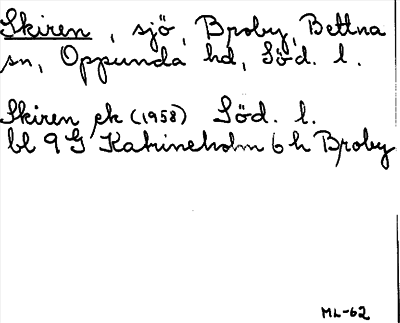 Skiren, sjö, Broby, Bettna
sn, Oppunda hd, Söd. l.
Skiren ek (1958) Söd. l.
bl 9 G Katrineholm 6 h Broby
ML-62